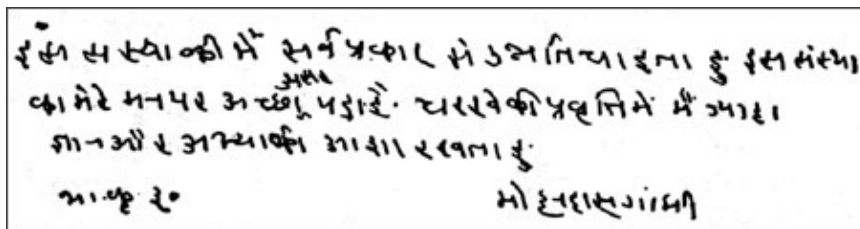 इस संस्था की मैं सर्व प्रकार से उन्नति चाहता हुं इस संस्था
का मेरे मन पर अच्छा असर पड़ा है. चरखे की प्रवृत्ति में मैं ज्यादा
ज्ञान और अभ्यास की आशा रखता हुं
मोहनदास गांधी